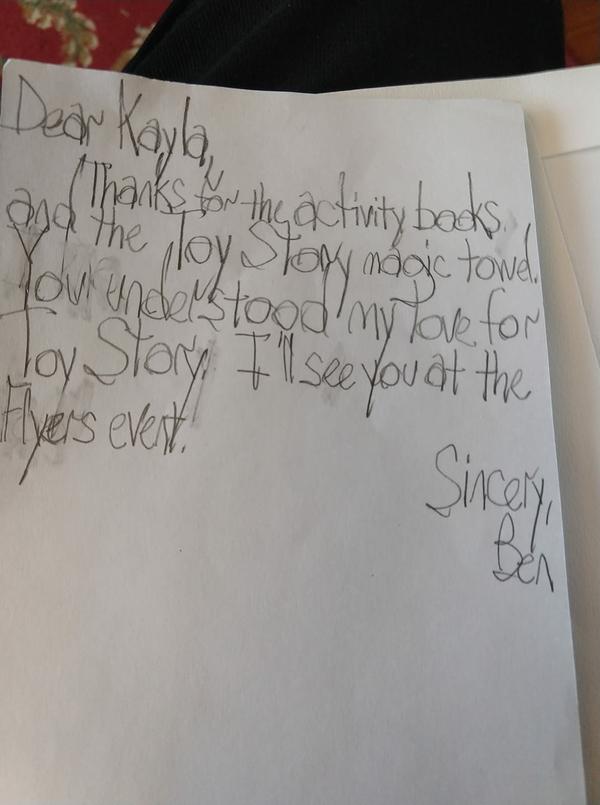 Dear Kayla,
Thanks for the activity books
and the Toy Story magic towel.
You understood my love for
Toy Story! I'll see you at the
Flyers event!
Sincery,
Ben